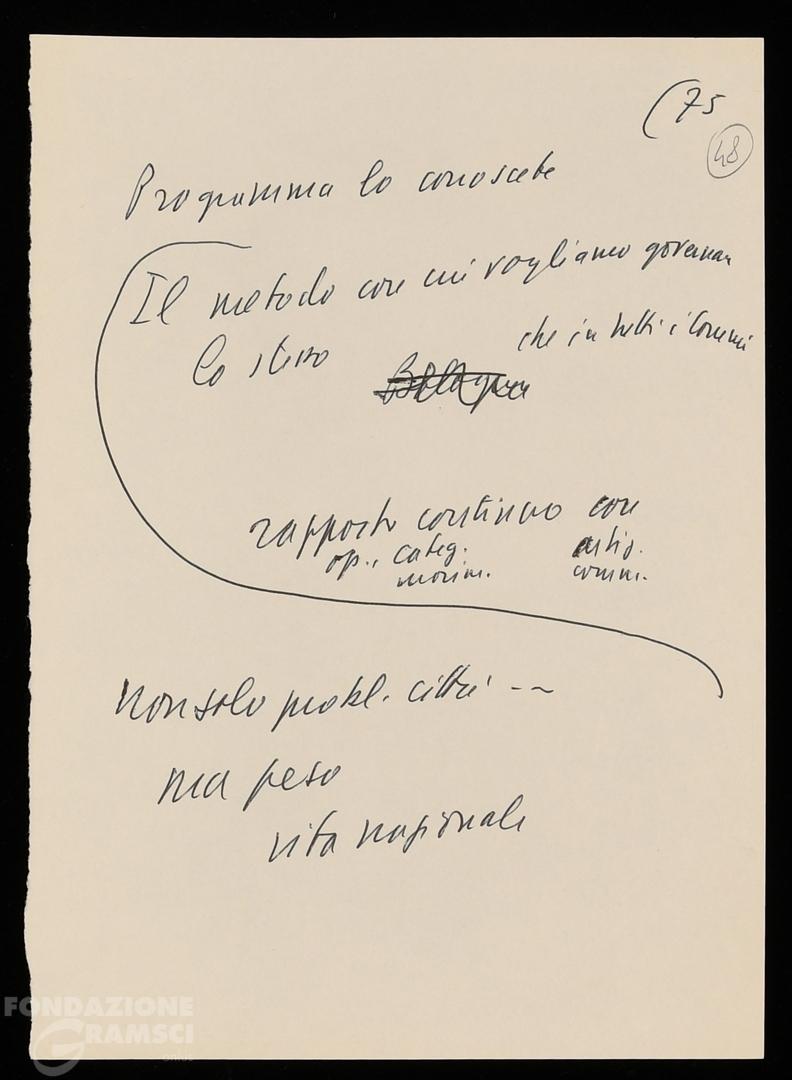 (75
48
Programma lo conoscete
Il metodo con cui vogliamo governare
lo stesso che in tutti i Comuni
Bologna
rapporto continuo con
op., categ. artig.
movim. comm.
Non solo probl. città --
ma peso
vita nazionale
FONDAZIONE
GRAMSCI
onlus